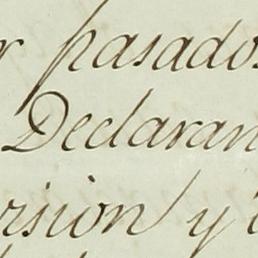 r pasados
Declaran
rsion y